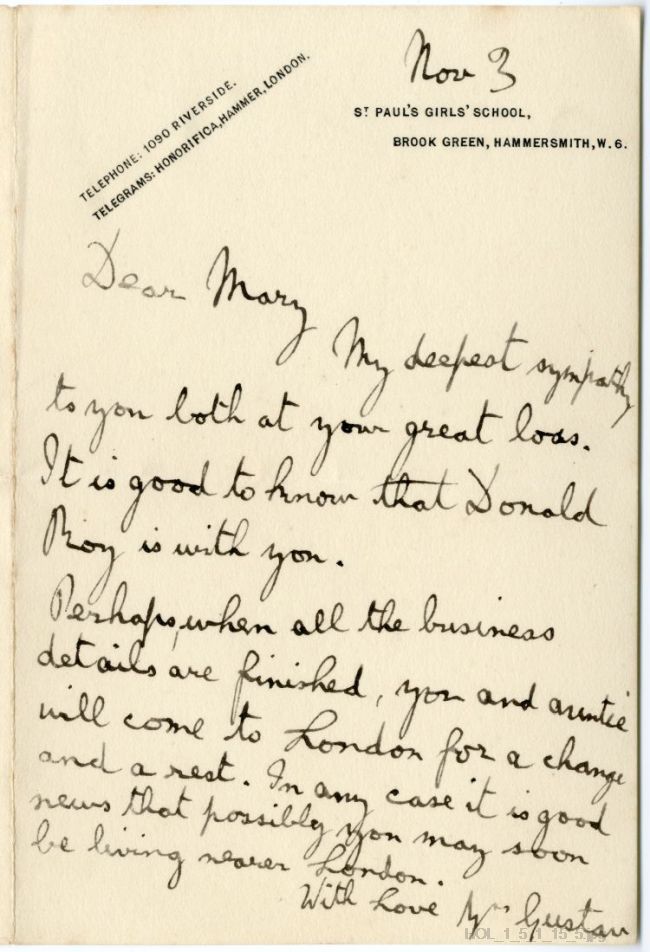 Nov 3
TELEPHONE: 1090 RIVERSIDE.
TELEGRAMS: HONORIFICA, HAMMER, LONDON.
ST PAUL'S GIRLS' SCHOOL,
BROOK GREEN, HAMMERSMITH, W. 6.
Dear Mary
My deepest sympathy
to you both at your great loss.
It is good to know that Donald
Roy is with you.
Perhaps, when all the business
details are finished, you and auntie
will come to London for a change
and a rest. In any case it is good
news that possibly you may soon
be living nearer London.
With Love Yrs Gustav
HOL_1_5_1_15_5.jpg